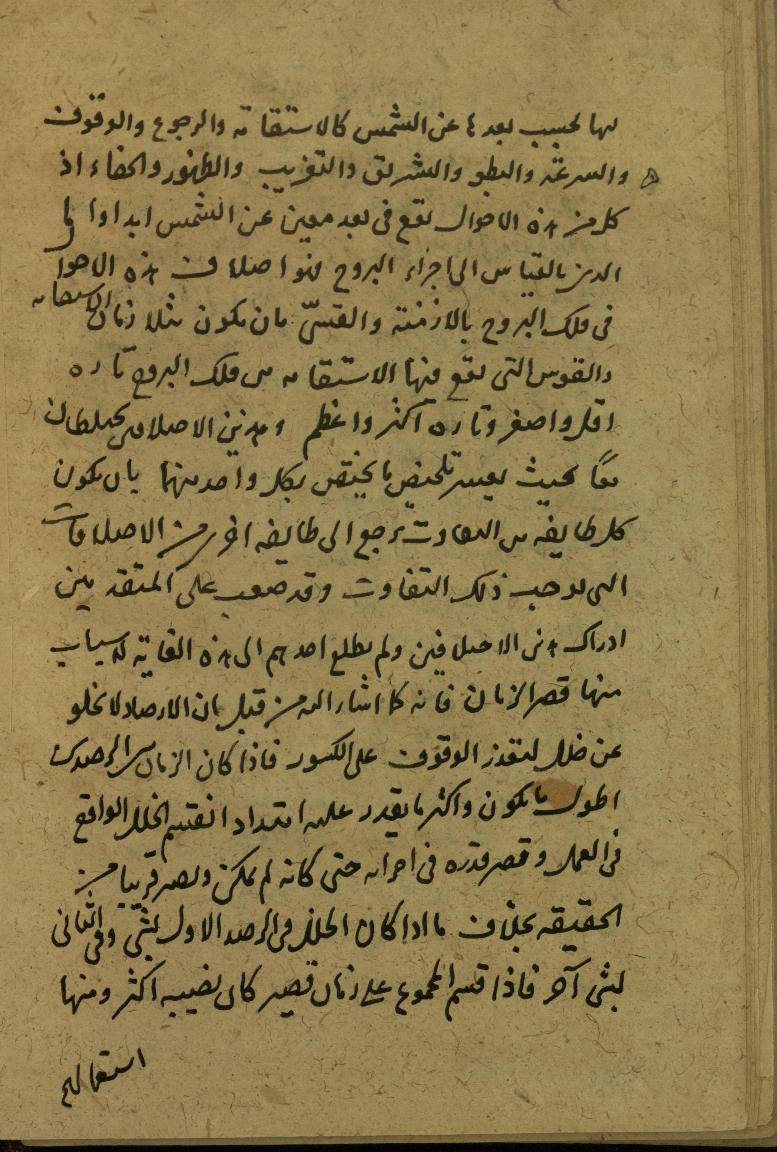 لها بحسب بعدها عن الشمس كالاستقامة والرجوع والوقوف
والسرعة والبطو والتشريق والتغريب والظهور والخفاء اذ
كل من هذه الاحوال يقع فى بعد معين عن الشمس ابدا وا
الذى بالقياس الى اجزاء البروج فهو اختلاف هذه الاحوا
فى فلك البروج بالازمنة والقسىّ بان يكون مثلا زمان الاستقامه
والقوس التى يقع فيها الاستقامه من فلك البروج تاره
اقل واصغر وتاره اكثر واعظم وهذين الاختلافين يختلطان
معًا بحيث يعسر تلخيص ما يختص بكل واحد منهما بان يكون
كل طايفه من التفاوت يرجع الى طايفه اخرى من الاختلافات
التى توجب ذلك التفاوت وقد صعب على المتقدمين
ادراك هذين الاختلافين ولم يطلع احدهم الى هذه الغاية لاسباب
منها قصر الزمان فانه كما اشار اليه من قبل بان الارصاد لا تخلو
عن خلل لتعذر الوقوف على الكسور فاذا كان الزمان بين الرصدين
اطول ما يكون واكثر ما يقدر عليه امتداد انقسم الخلل الواقع
فى العمل وقصر قدره فى اجزائه حتى كانه لم يكن ويصير قريبا من
الحقيقه بخلاف ما اذا كان الخلل فى الرصد الاول بشئ وفى الثانى
بشئ آخر فاذا قسم المجموع على زمان قصير كان نصيبه اكثر ومنها
استعمالهم